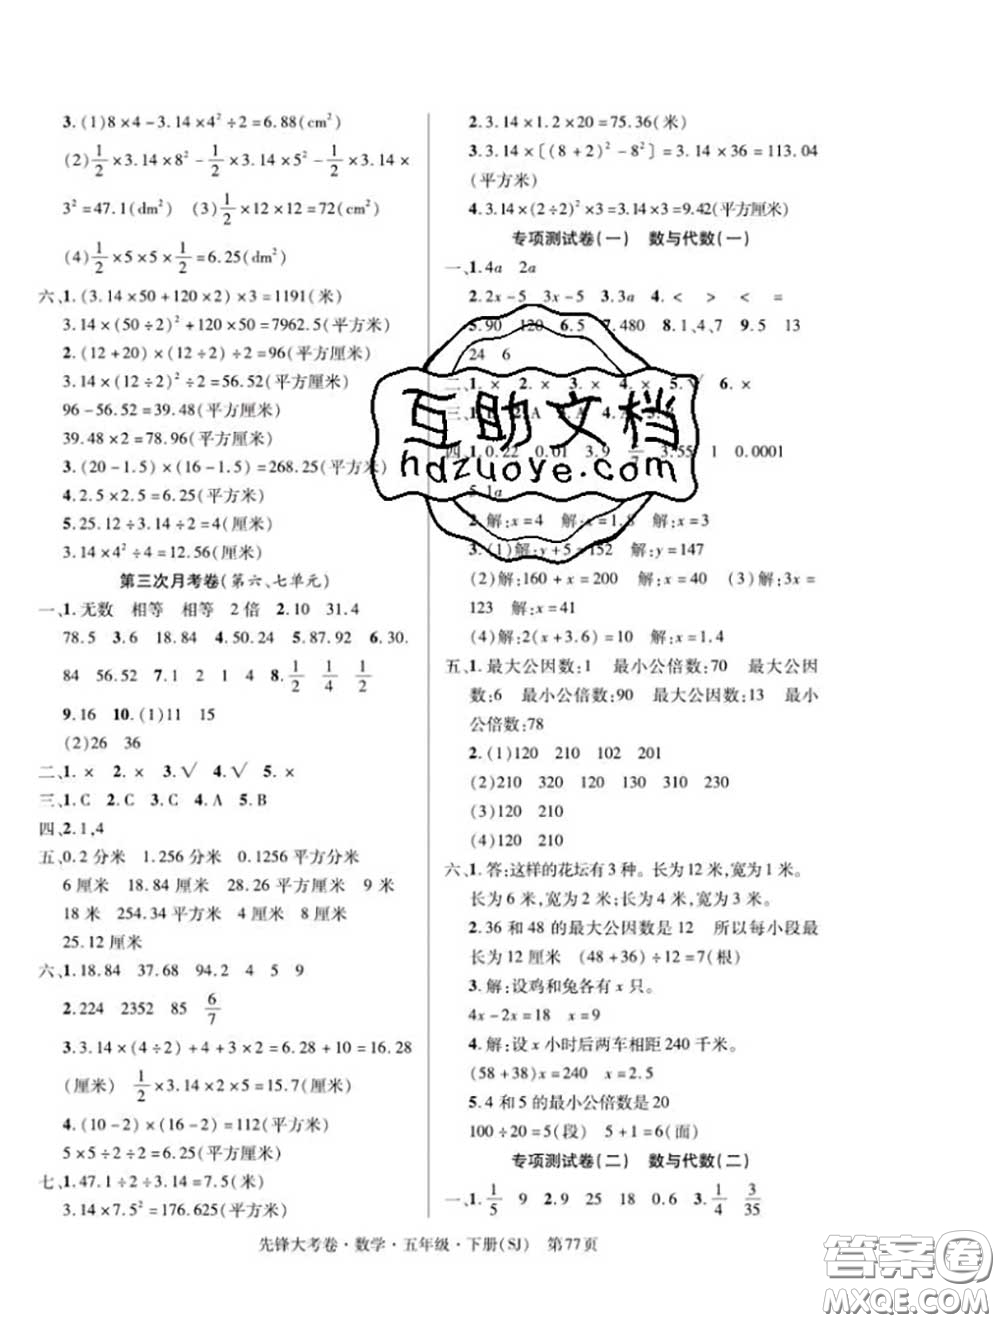 3.(1)8×4−3.14×4²÷2=6.88(cm²)
(2)1/2×3.14×8²−1/2×3.14×5²−1/2×3.14×
3²=47.1(dm²) (3)1/2×12×12=72(cm²)
(4)1/2×5×5×1/2=6.25(dm²)
六、1.(3.14×50+120×2)×3=1191(米)
3.14×(50÷2)²+120×50=7962.5(平方米)
2.(12+20)×(12÷2)÷2=96(平方厘米)
3.14×(12÷2)²÷2=56.52(平方厘米)
96−56.52=39.48(平方厘米)
39.48×2=78.96(平方厘米)
3.(20−1.5)×(16−1.5)=268.25(平方米)
4.2.5×2.5=6.25(平方米)
5.25.12÷3.14÷2=4(厘米)
3.14×4²÷4=12.56(厘米)
第三次月考卷(第六、七单元)
一、1.无数 相等 相等 2倍 2.10 31.4
78.5 3.6 18.84 4.50.24 5.87.92 6.30.
84 56.52 7.1 2 1 4 8.1/2 1/4 1/2
9.16 10.(1)11 15
(2)26 36
二、1.× 2.× 3.√ 4.√ 5.×
三、1.C 2.C 3.C 4.A 5.B
四、2.1,4
五、0.2分米 1.256分米 0.1256平方分米
6厘米 18.84厘米 28.26平方厘米 9米
18米 254.34平方米 4厘米 8厘米
25.12厘米
六、1.18.84 37.68 94.2 4 5 9
2.224 2352 85 6/7
3.3.14×(4÷2)+4+3×2=6.28+10=16.28
(厘米) 1/2×3.14×2×5=15.7(厘米)
4.(10−2)×(16−2)=112(平方米)
5×5÷2÷2=6.25(平方厘米)
七、1.47.1÷2÷3.14=7.5(米)
3.14×7.5²=176.625(平方米)
2.3.14×1.2×20=75.36(米)
3.3.14×[(8+2)²−8²]=3.14×36=113.04
(平方米)
4.3.14×(2÷2)²×3=3.14×3=9.42(平方厘米)
专项测试卷(一) 数与代数(一)
一、1.4a 2a
2.2x−5 3x−5 3.3a 4.< > < =
5.90 120 6.5 7.480 8.1、4、7 9.5 13
24 6
二、1.× 2.× 3.× 4.× 5.√ 6.×
三、
四、1.0.22 0.01 3.9 3.55 1 0.0001
5.1a
2.解:x=4 解:x=1.8 解:x=3
3.(1)解:y+5=152 解:y=147
(2)解:160+x=180 解:x=20 (3)解:3x=
123 解:x=41
(4)解:2(x+3.6)=10 解:x=1.4
五、1.最大公因数:1 最小公倍数:70 最大公因
数:6 最小公倍数:90 最大公因数:13 最小
公倍数:78
2.(1)120 210 102 201
(2)210 320 120 310 230 130
(3)120 210
(4)120 210
六、1.答:这样的花坛有3种。长为12米,宽为1米。
长为6米,宽为2米;长为4米,宽为3米。
2.36和48的最大公因数是12 所以每小段最
长为12厘米 (48+36)÷12=7(根)
3.解:设鸡和兔各有x只。
4x−2x=18 x=9
4.解:设x小时后两车相距240千米。
(58+38)x=240 x=2.5
5.4和5的最小公倍数是20
100÷20=5(段) 5+1=6(面)
专项测试卷(二) 数与代数(二)
一、1.1/5 9 2.9 25 18 0.6 3.1/4 3/35
先锋大考卷·数学·五年级·下册(SJ) 第77页
互助文档
hdzuoye.com
答案圈
MXQE.COM